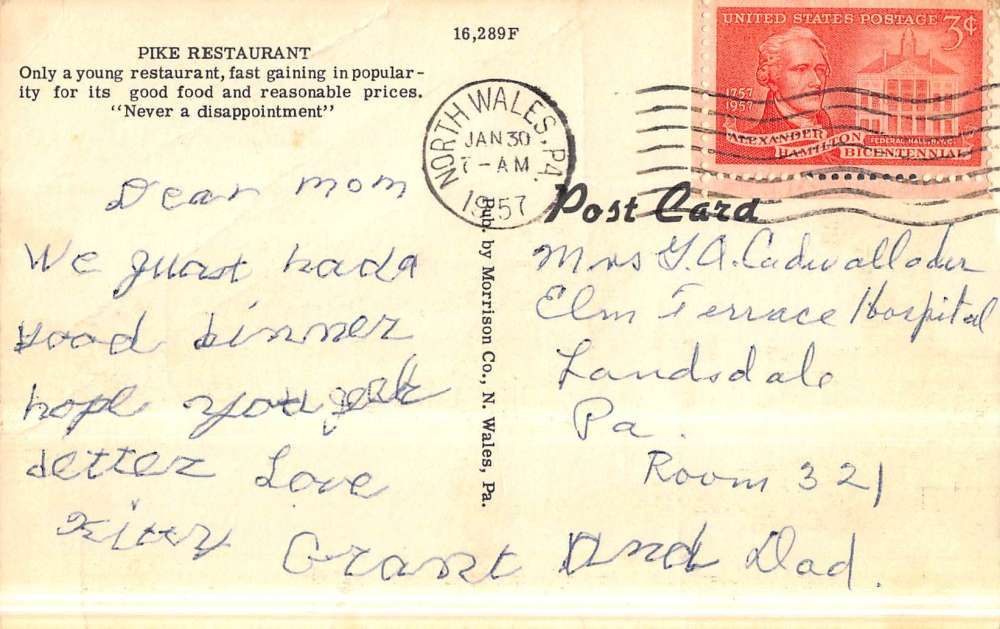 16,289F
PIKE RESTAURANT
Only a young restaurant, fast gaining in popular-
ity for its good food and reasonable prices.
"Never a disappointment"
NORTH WALES, PA.
JAN 30
7 - AM
1957
UNITED STATES POSTAGE 3¢
1757
1957
ALEXANDER
HAMILTON
BICENTENNIAL
FEDERAL HALL, N.Y.C.
Post Card
Pub. by Morrison Co., N. Wales, Pa.
Dear mom
We guast had a
good dinner
hope you
better Love
Kitty Grant And Dad.
Mrs G. A. Cadwallader
Elm Terrace Hospital
Landsdale
Pa.
Room 321